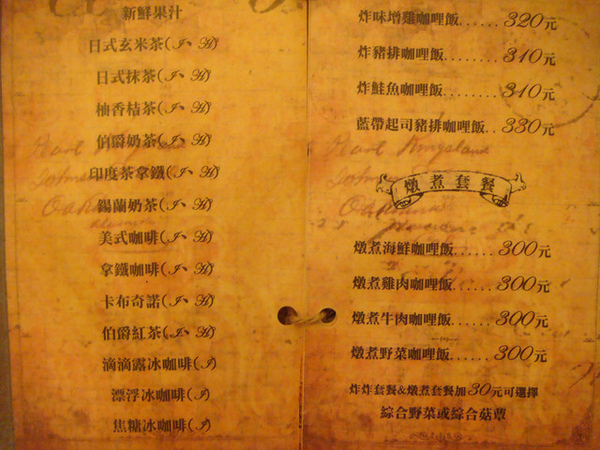 新鮮果汁
日式玄米茶(I、H)
日式抹茶(I、H)
柚香桔茶(I、H)
伯爵奶茶(I、H)
印度茶拿鐵(I、H)
錫蘭奶茶(I、H)
美式咖啡(I、H)
拿鐵咖啡(I、H)
卡布奇諾(I、H)
伯爵紅茶(I、H)
滴滴露冰咖啡(I)
漂浮冰咖啡(I)
焦糖冰咖啡(I)
炸味增雞咖哩飯......320元
炸豬排咖哩飯........310元
炸鮭魚咖哩飯........310元
藍帶起司豬排咖哩飯..330元
燉煮套餐
燉煮海鮮咖哩飯......300元
燉煮雞肉咖哩飯......300元
燉煮牛肉咖哩飯......300元
燉煮野菜咖哩飯......300元
炸炸套餐&燉煮套餐加30元可選擇
綜合野菜或綜合菇蕈